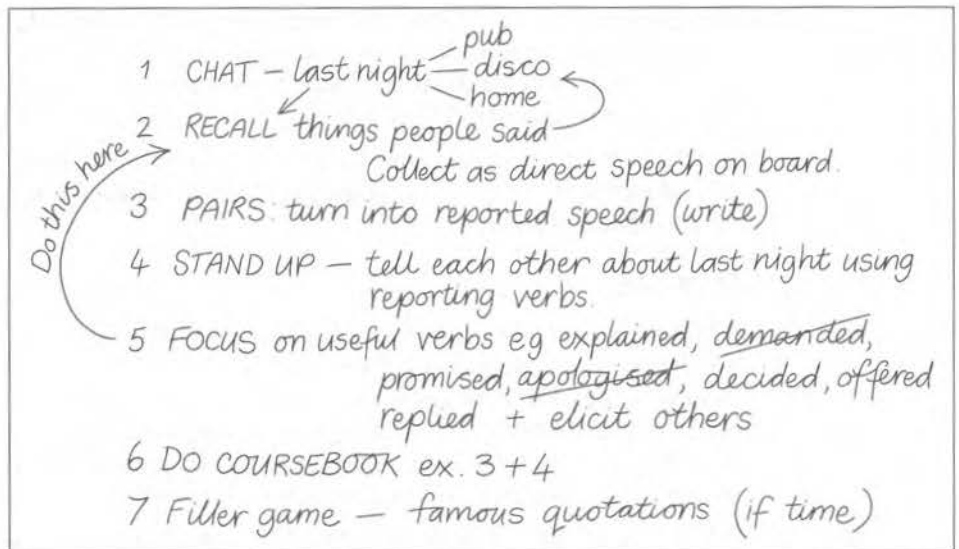 pub
1 CHAT – last night – disco
home
2 RECALL things people said
Collect as direct speech on board.
Do this here
3 PAIRS: turn into reported speech (write)
4 STAND UP – tell each other about last night using
reporting verbs.
5 FOCUS on useful verbs eg explained, demanded,
promised, apologised, decided, offered
replied + elicit others
6 DO COURSEBOOK ex. 3 + 4
7 Filler game – famous quotations (if time)